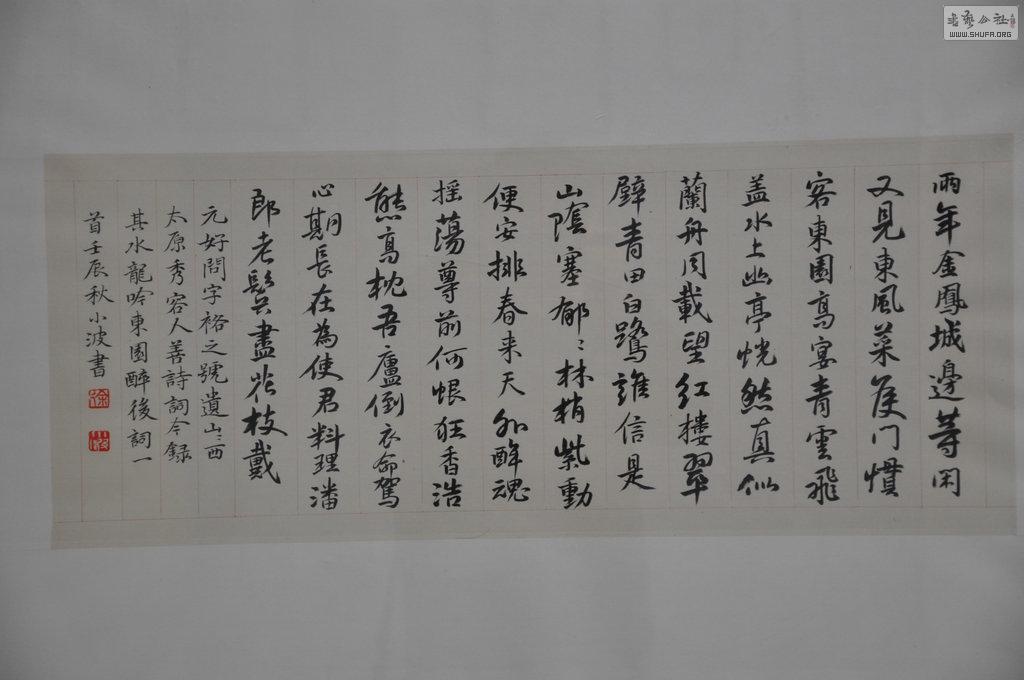 兩年金鳳城邊等閑
又見東風菜侯門慣
客東園高宴青雲飛
盖水上幽亭恍然真似
蘭舟同載望紅樓翠
壁青田白鷺誰信是
山陰塞郁〻林梢紫動
便安排春来天外醉魂
摇蕩尊前何恨狂香浩
態高枕吾廬倒衣命駕
心期長在為使君料理潘
郎老鬢盡花枝戴
元好問字裕之號遺山〻西
太原秀容人善詩詞今録
其水龍吟東園醉後詞一
首壬辰秋小波書
書藝公社
WWW.SHUFA.ORG